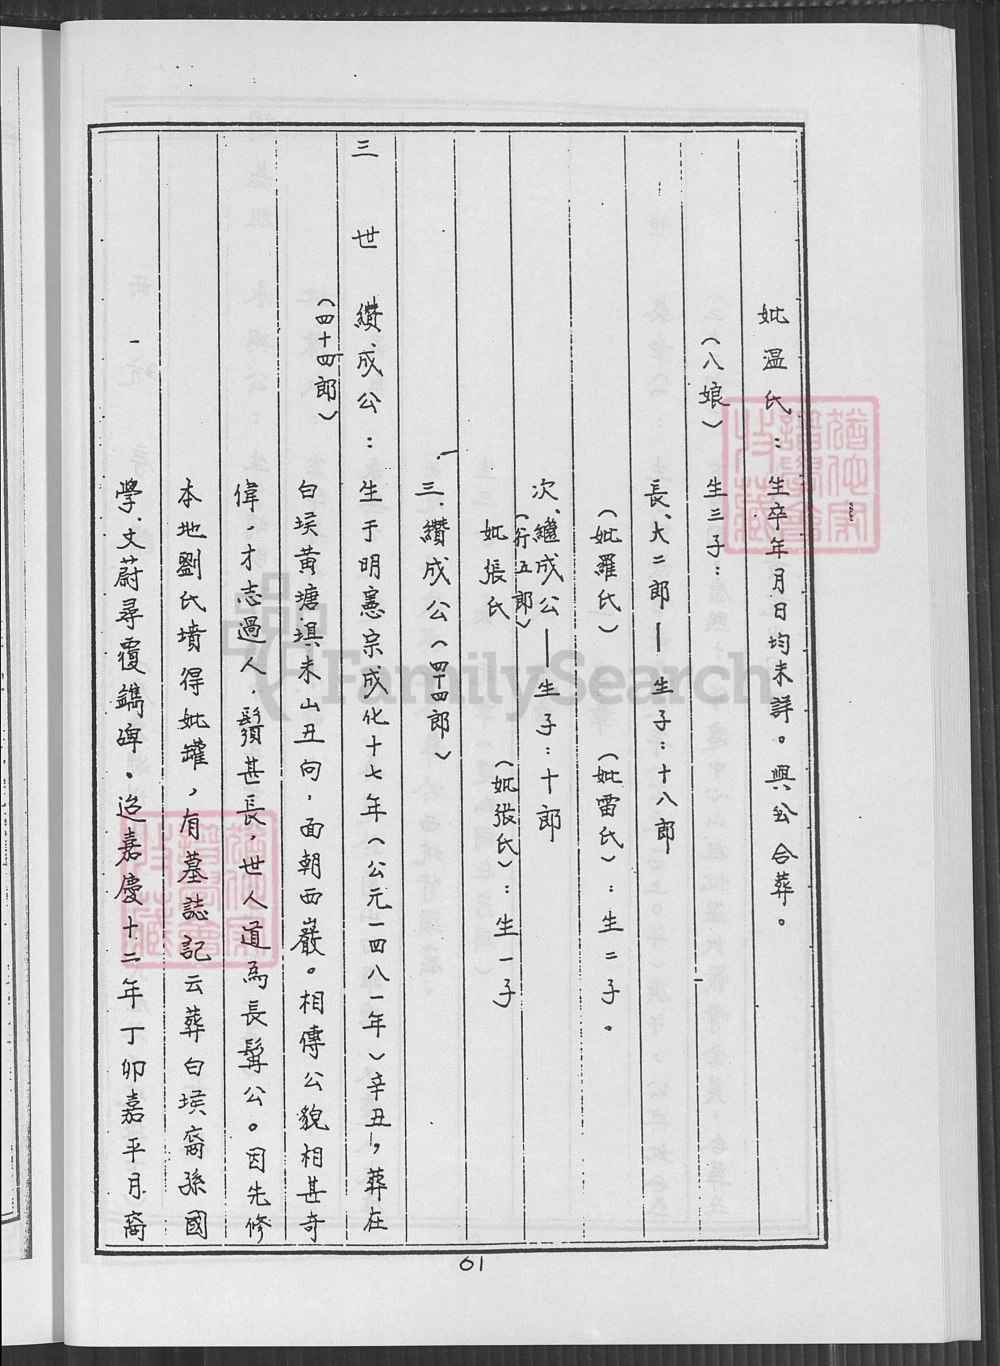 妣温氏：生卒年月日均未詳。與公合葬。
（八娘）生三子：
長、大二郎—生子：十八郎
（妣羅氏）（妣雷氏）：生二子。
次、繼成公—生子：十郎
（行五郎）
妣張氏（妣張氏）：生一子
三、纘成公（四十四郎）
三世 纘成公：生于明憲宗成化十七年（公元一四八一年）辛丑，葬在
（四十四郎）
白堠黄塘埧未山丑向，面朝西巖。相傳公貌相甚奇
偉，才志過人，鬚甚長，世人道為長髯公。因先修
本地劉氏墳得妣罐，有墓誌記云葬白堠裔孫國
學、文蔚尋覆鐫碑。迨嘉慶十二年丁卯嘉平月裔
61
FamilySearch